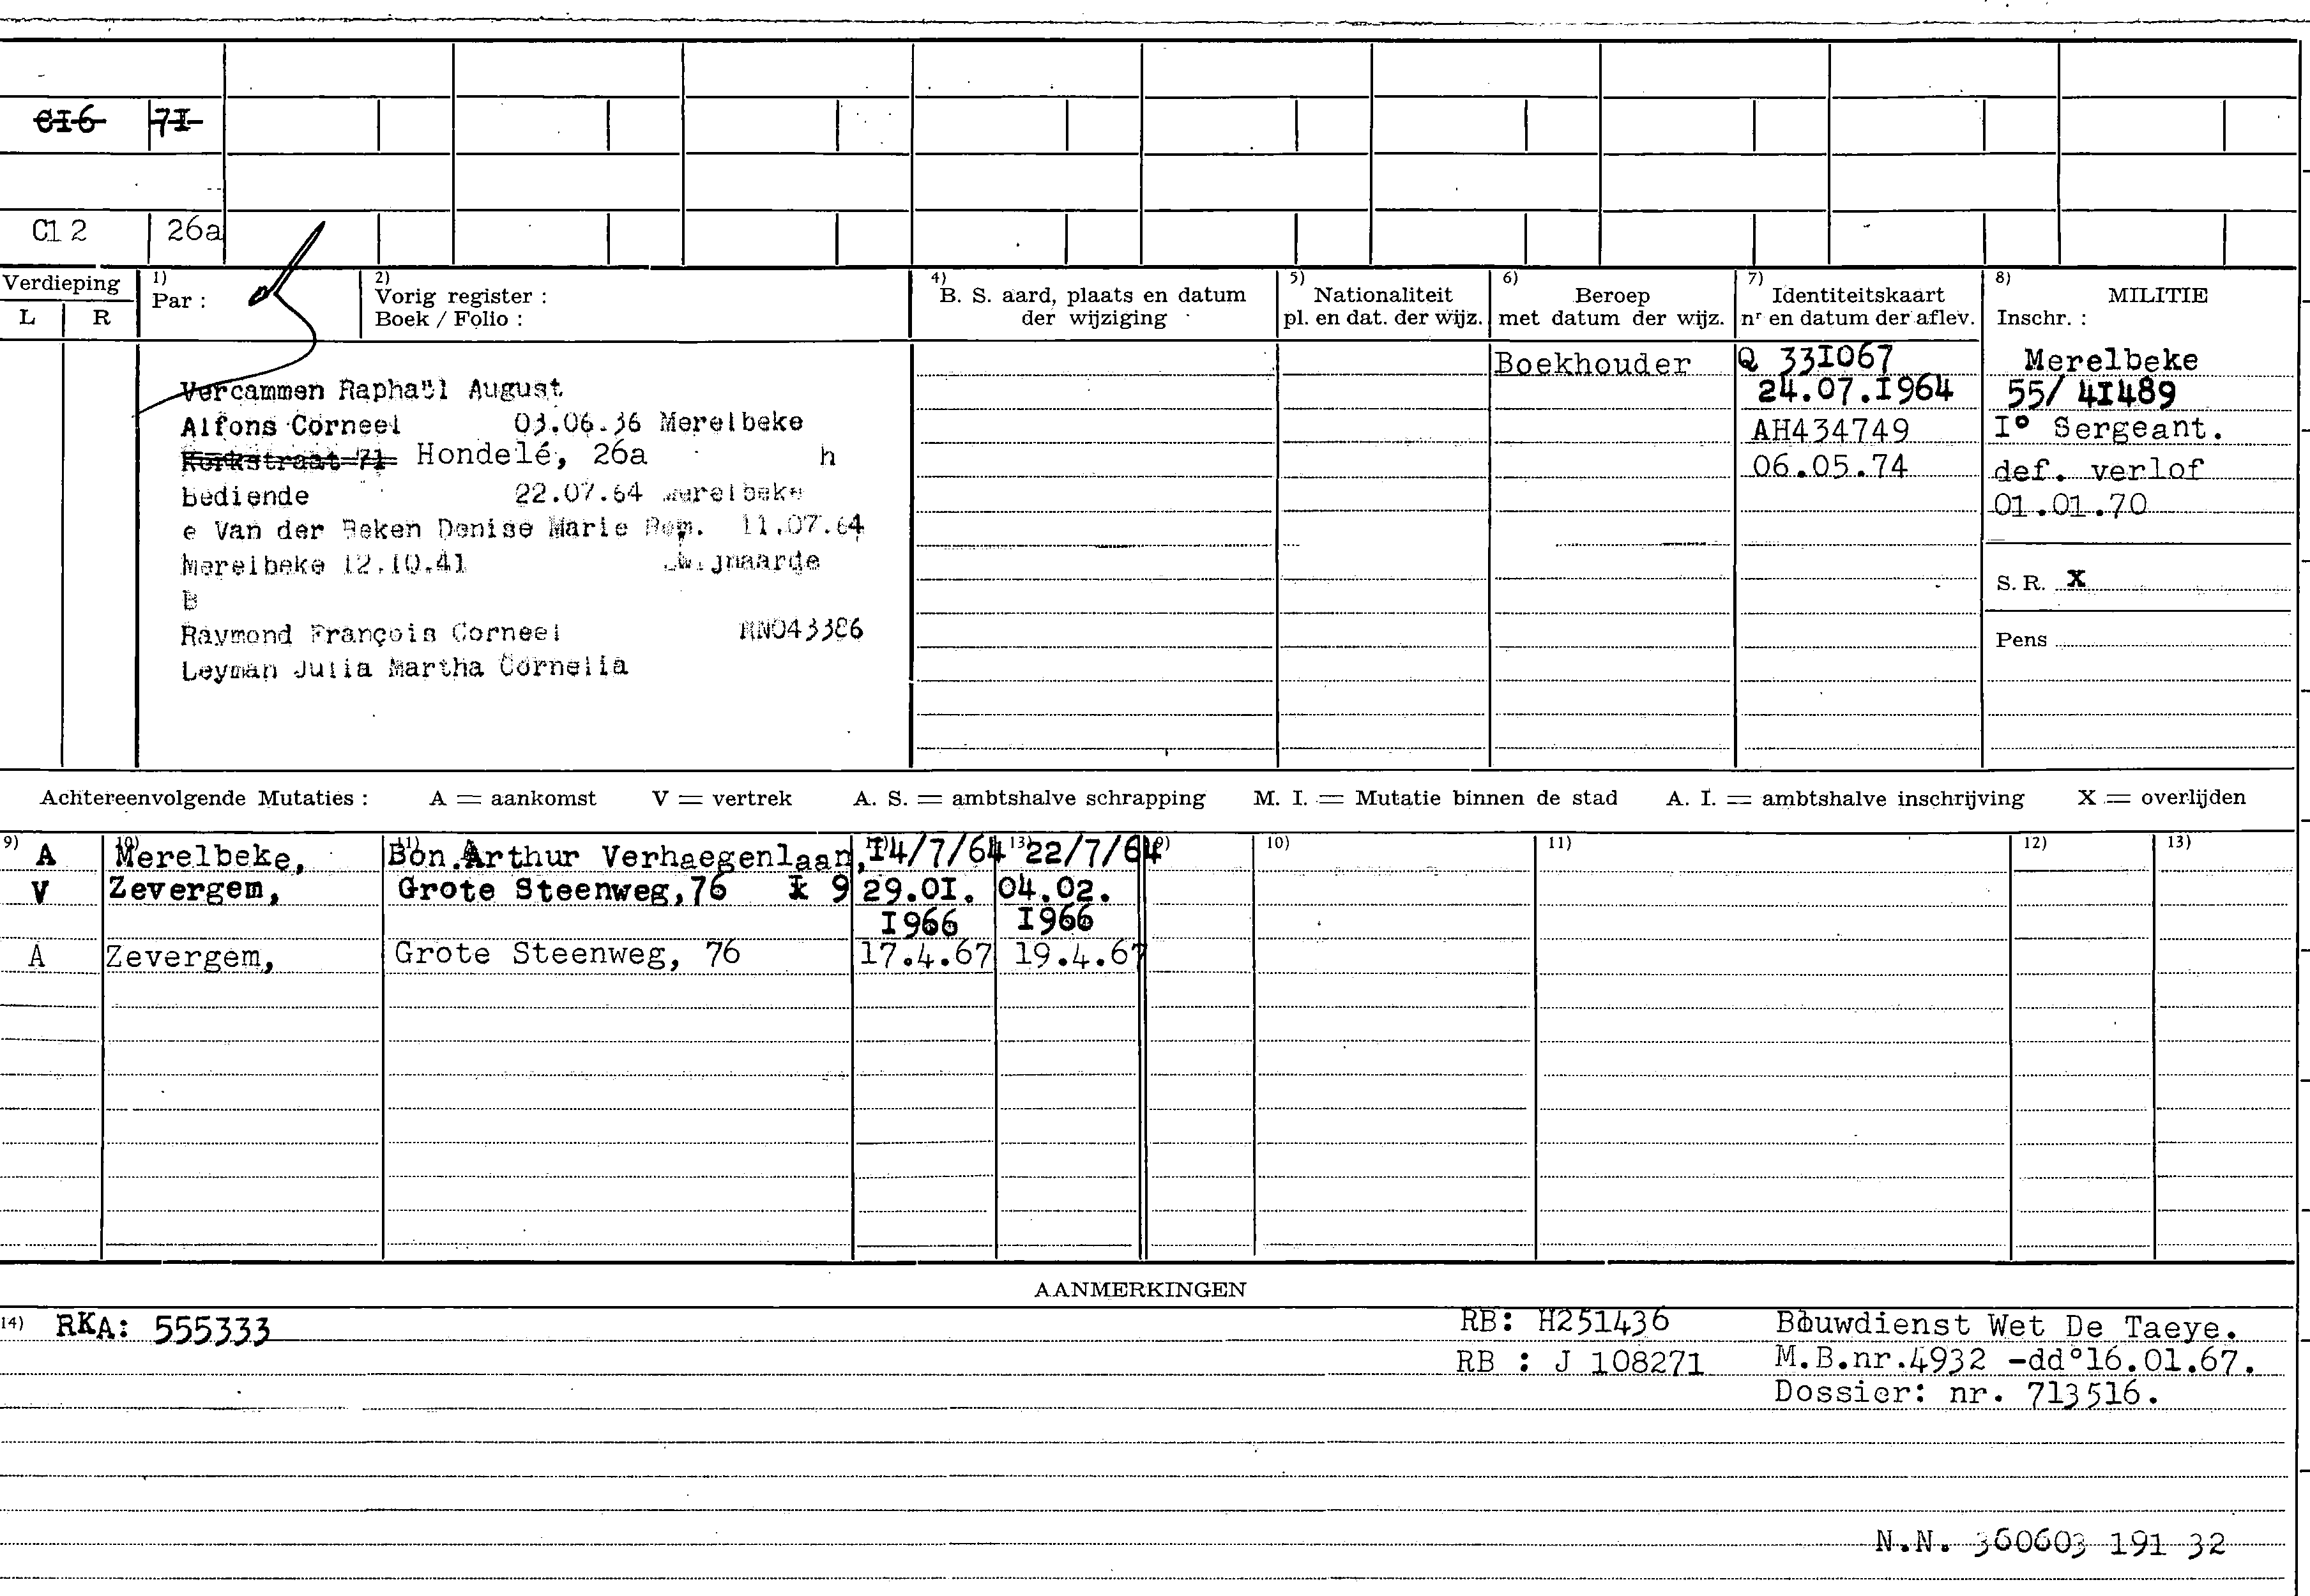 C16 71
C12 26a
Verdieping
L R
1)
Par :
2)
Vorig register :
Boek / Folio :
4)
B. S. aard, plaats en datum
der wijziging
5)
Nationaliteit
pl. en dat. der wijz.
6)
Beroep
met datum der wijz.
7)
Identiteitskaart
nr en datum der aflev.
8)
MILITIE
Inschr. :
Vercammen Raphaël August
Alfons Corneel 03.06.36 Merelbeke
Kerkstraat 71 Hondelé, 26a h
bediende 22.07.64 Merelbeke
e Van der Beken Denise Marie Rem. 11.07.64
Merelbeke 12.10.41 Zwijnaarde
B
Raymond François Corneel
Leyman Julia Martha Cornelia
Boekhouder
Q 33I067
24.07.I964
AH434749
06.05.74
Merelbeke
55/ 4I489
I° Sergeant.
def. verlof
01.01.70
S. R. X
Pens
Achtereenvolgende Mutaties : A = aankomst V = vertrek A. S. = ambtshalve schrapping M. I. = Mutatie binnen de stad A. I. = ambtshalve inschrijving X = overlijden
9) 10) 11) 12) 13) 9) 10) 11) 12) 13)
A Merelbeke, Bon.Arthur Verhaegenlaan, I4/7/64 22/7/64
V Zevergem, Grote Steenweg,76 9 29.0I. 04.02.
I966 I966
A Zevergem, Grote Steenweg, 76 17.4.67 19.4.67
AANMERKINGEN
14) RKA: 555333 RB: H251436 Bouwdienst Wet De Taeye.
RB : J 108271 M.B.nr.4932 -dd°16.01.67.
Dossier: nr. 713516.
N.N. 360603 191 32